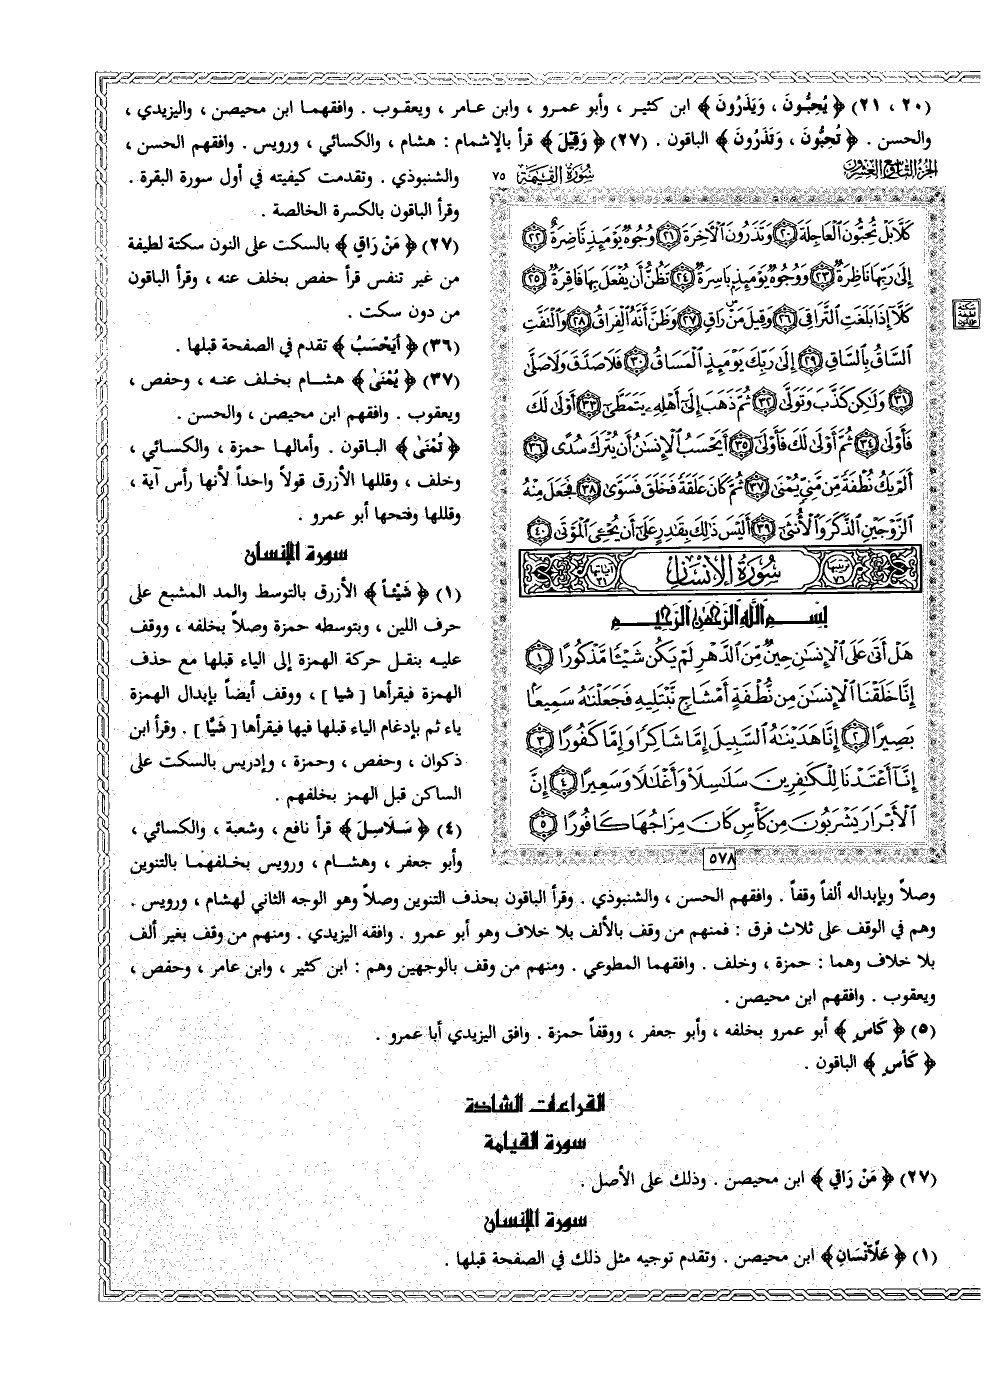 (٢٠ ، ٢١) ﴿ يُحِبُّونَ ، وَيَذَرُونَ ﴾ ابن كثير ، وأبو عمرو ، وابن عامر ، ويعقوب . وافقهما ابن محيصن ، واليزيدي ،
والحسن . ﴿ تُحِبُّونَ ، وَتَذَرُونَ ﴾ الباقون . (٢٧) ﴿ وَقِيلَ ﴾ قرأ بالإشمام : هشام ، والكسائي ، ورويس . وافقهم الحسن ،
والشنبوذي . وتقدمت كيفيته في أول سورة البقرة .
وقرأ الباقون بالكسرة الخالصة .
(٢٧) ﴿ مَنْ رَاقٍ ﴾ بالسكت على النون سكتة لطيفة
من غير تنفس قرأ حفص بخلف عنه ، وقرأ الباقون
من دون سكت .
(٣٦) ﴿ أَيَحْسَبُ ﴾ تقدم في الصفحة قبلها .
(٣٧) ﴿ يُمْنَى ﴾ هشام بخلف عنه ، وحفص ،
ويعقوب . وافقهم ابن محيصن ، والحسن .
﴿ تُمْنَى ﴾ الباقون . وأمالها حمزة ، والكسائي ،
وخلف ، وقللها الأزرق قولاً واحداً لأنها رأس آية ،
وقللها وفتحها أبو عمرو .
سورة الإنسان
(١) ﴿ شَيْئاً ﴾ الأزرق بالتوسط والمد المشبع على
حرف اللين ، وبتوسطه حمزة وصلاً بخلفه ، ووقف
عليه بنقل حركة الهمزة إلى الياء قبلها مع حذف
الهمزة فيقرأها [ شيا ] ، ووقف أيضاً بإبدال الهمزة
ياء ثم بإدغام الياء قبلها فيها فيقرأها [ شَيّا ] . وقرأ ابن
ذكوان ، وحفص ، وحمزة ، وإدريس بالسكت على
الساكن قبل الهمز بخلفهم .
(٤) ﴿ سَلَاسِلَ ﴾ قرأ نافع ، وشعبة ، والكسائي ،
وأبو جعفر ، وهشام ، ورويس بخلفهما بالتنوين
الجزء التاسع والعشرون
سُورَةُ القِيَامَة ٧٥
كَلَّا بَلْ تُحِبُّونَ ٱلْعَاجِلَةَ ٢٠ وَتَذَرُونَ ٱلْآخِرَةَ ٢١ وُجُوهٌ يَوْمَئِذٍ نَّاضِرَةٌ ٢٢
إِلَىٰ رَبِّهَا نَاظِرَةٌ ٢٣ وَوُجُوهٌ يَوْمَئِذٍ بَاسِرَةٌ ٢٤ تَظُنُّ أَن يُفْعَلَ بِهَا فَاقِرَةٌ ٢٥
كَلَّا إِذَا بَلَغَتِ ٱلتَّرَاقِيَ ٢٦ وَقِيلَ مَنْ رَاقٍ ٢٧ وَظَنَّ أَنَّهُ ٱلْفِرَاقُ ٢٨ وَٱلْتَفَّتِ
ٱلسَّاقُ بِٱلسَّاقِ ٢٩ إِلَىٰ رَبِّكَ يَوْمَئِذٍ ٱلْمَسَاقُ ٣٠ فَلَا صَدَّقَ وَلَا صَلَّىٰ
٣١ وَلَٰكِن كَذَّبَ وَتَوَلَّىٰ ٣٢ ثُمَّ ذَهَبَ إِلَىٰ أَهْلِهِۦ يَتَمَطَّىٰ ٣٣ أَوْلَىٰ لَكَ
فَأَوْلَىٰ ٣٤ ثُمَّ أَوْلَىٰ لَكَ فَأَوْلَىٰ ٣٥ أَيَحْسَبُ ٱلْإِنسَٰنُ أَن يُتْرَكَ سُدًى ٣٦
أَلَمْ يَكُ نُطْفَةً مِّن مَّنِيٍّ يُمْنَىٰ ٣٧ ثُمَّ كَانَ عَلَقَةً فَخَلَقَ فَسَوَّىٰ ٣٨ فَجَعَلَ مِنْهُ
ٱلزَّوْجَيْنِ ٱلذَّكَرَ وَٱلْأُنثَىٰ ٣٩ أَلَيْسَ ذَٰلِكَ بِقَٰدِرٍ عَلَىٰ أَن يُحْۦِىَ ٱلْمَوْتَىٰ ٤٠
ترتيبها ٧٦ سُورَةُ الإِنسَان آياتها ٣١
بِسْمِ ٱللَّهِ ٱلرَّحْمَٰنِ ٱلرَّحِيمِ
هَلْ أَتَىٰ عَلَى ٱلْإِنسَٰنِ حِينٌ مِّنَ ٱلدَّهْرِ لَمْ يَكُن شَيْـًٔا مَّذْكُورًا ١
إِنَّا خَلَقْنَا ٱلْإِنسَٰنَ مِن نُّطْفَةٍ أَمْشَاجٍ نَّبْتَلِيهِ فَجَعَلْنَٰهُ سَمِيعًۢا
بَصِيرًا ٢ إِنَّا هَدَيْنَٰهُ ٱلسَّبِيلَ إِمَّا شَاكِرًا وَإِمَّا كَفُورًا ٣
إِنَّآ أَعْتَدْنَا لِلْكَٰفِرِينَ سَلَٰسِلَا۟ وَأَغْلَٰلًا وَسَعِيرًا ٤ إِنَّ
ٱلْأَبْرَارَ يَشْرَبُونَ مِن كَأْسٍ كَانَ مِزَاجُهَا كَافُورًا ٥
٥٧٨
وصلاً وبإبداله ألفاً وقفاً . وافقهم الحسن ، والشنبوذي . وقرأ الباقون بحذف التنوين وصلاً وهو الوجه الثاني لهشام ، ورويس .
وهم في الوقف على ثلاث فرق : فمنهم من وقف بالألف بلا خلاف وهو أبو عمرو . وافقه اليزيدي . ومنهم من وقف بغير ألف
بلا خلاف وهما : حمزة ، وخلف . وافقهما المطوعي . ومنهم من وقف بالوجهين وهم : ابن كثير ، وابن عامر ، وحفص ،
ويعقوب . وافقهم ابن محيصن .
(٥) ﴿ كَاسٍ ﴾ أبو عمرو بخلفه ، وأبو جعفر ، ووقفاً حمزة . وافق اليزيدي أبا عمرو .
﴿ كَأْسٍ ﴾ الباقون .
القراءات الشاذة
سورة القيامة
(٢٧) ﴿ مَنْ رَاقي ﴾ ابن محيصن . وذلك على الأصل .
سورة الإنسان
(١) ﴿ عَلَّانْسَانِ ﴾ ابن محيصن . وتقدم توجيه مثل ذلك في الصفحة قبلها .